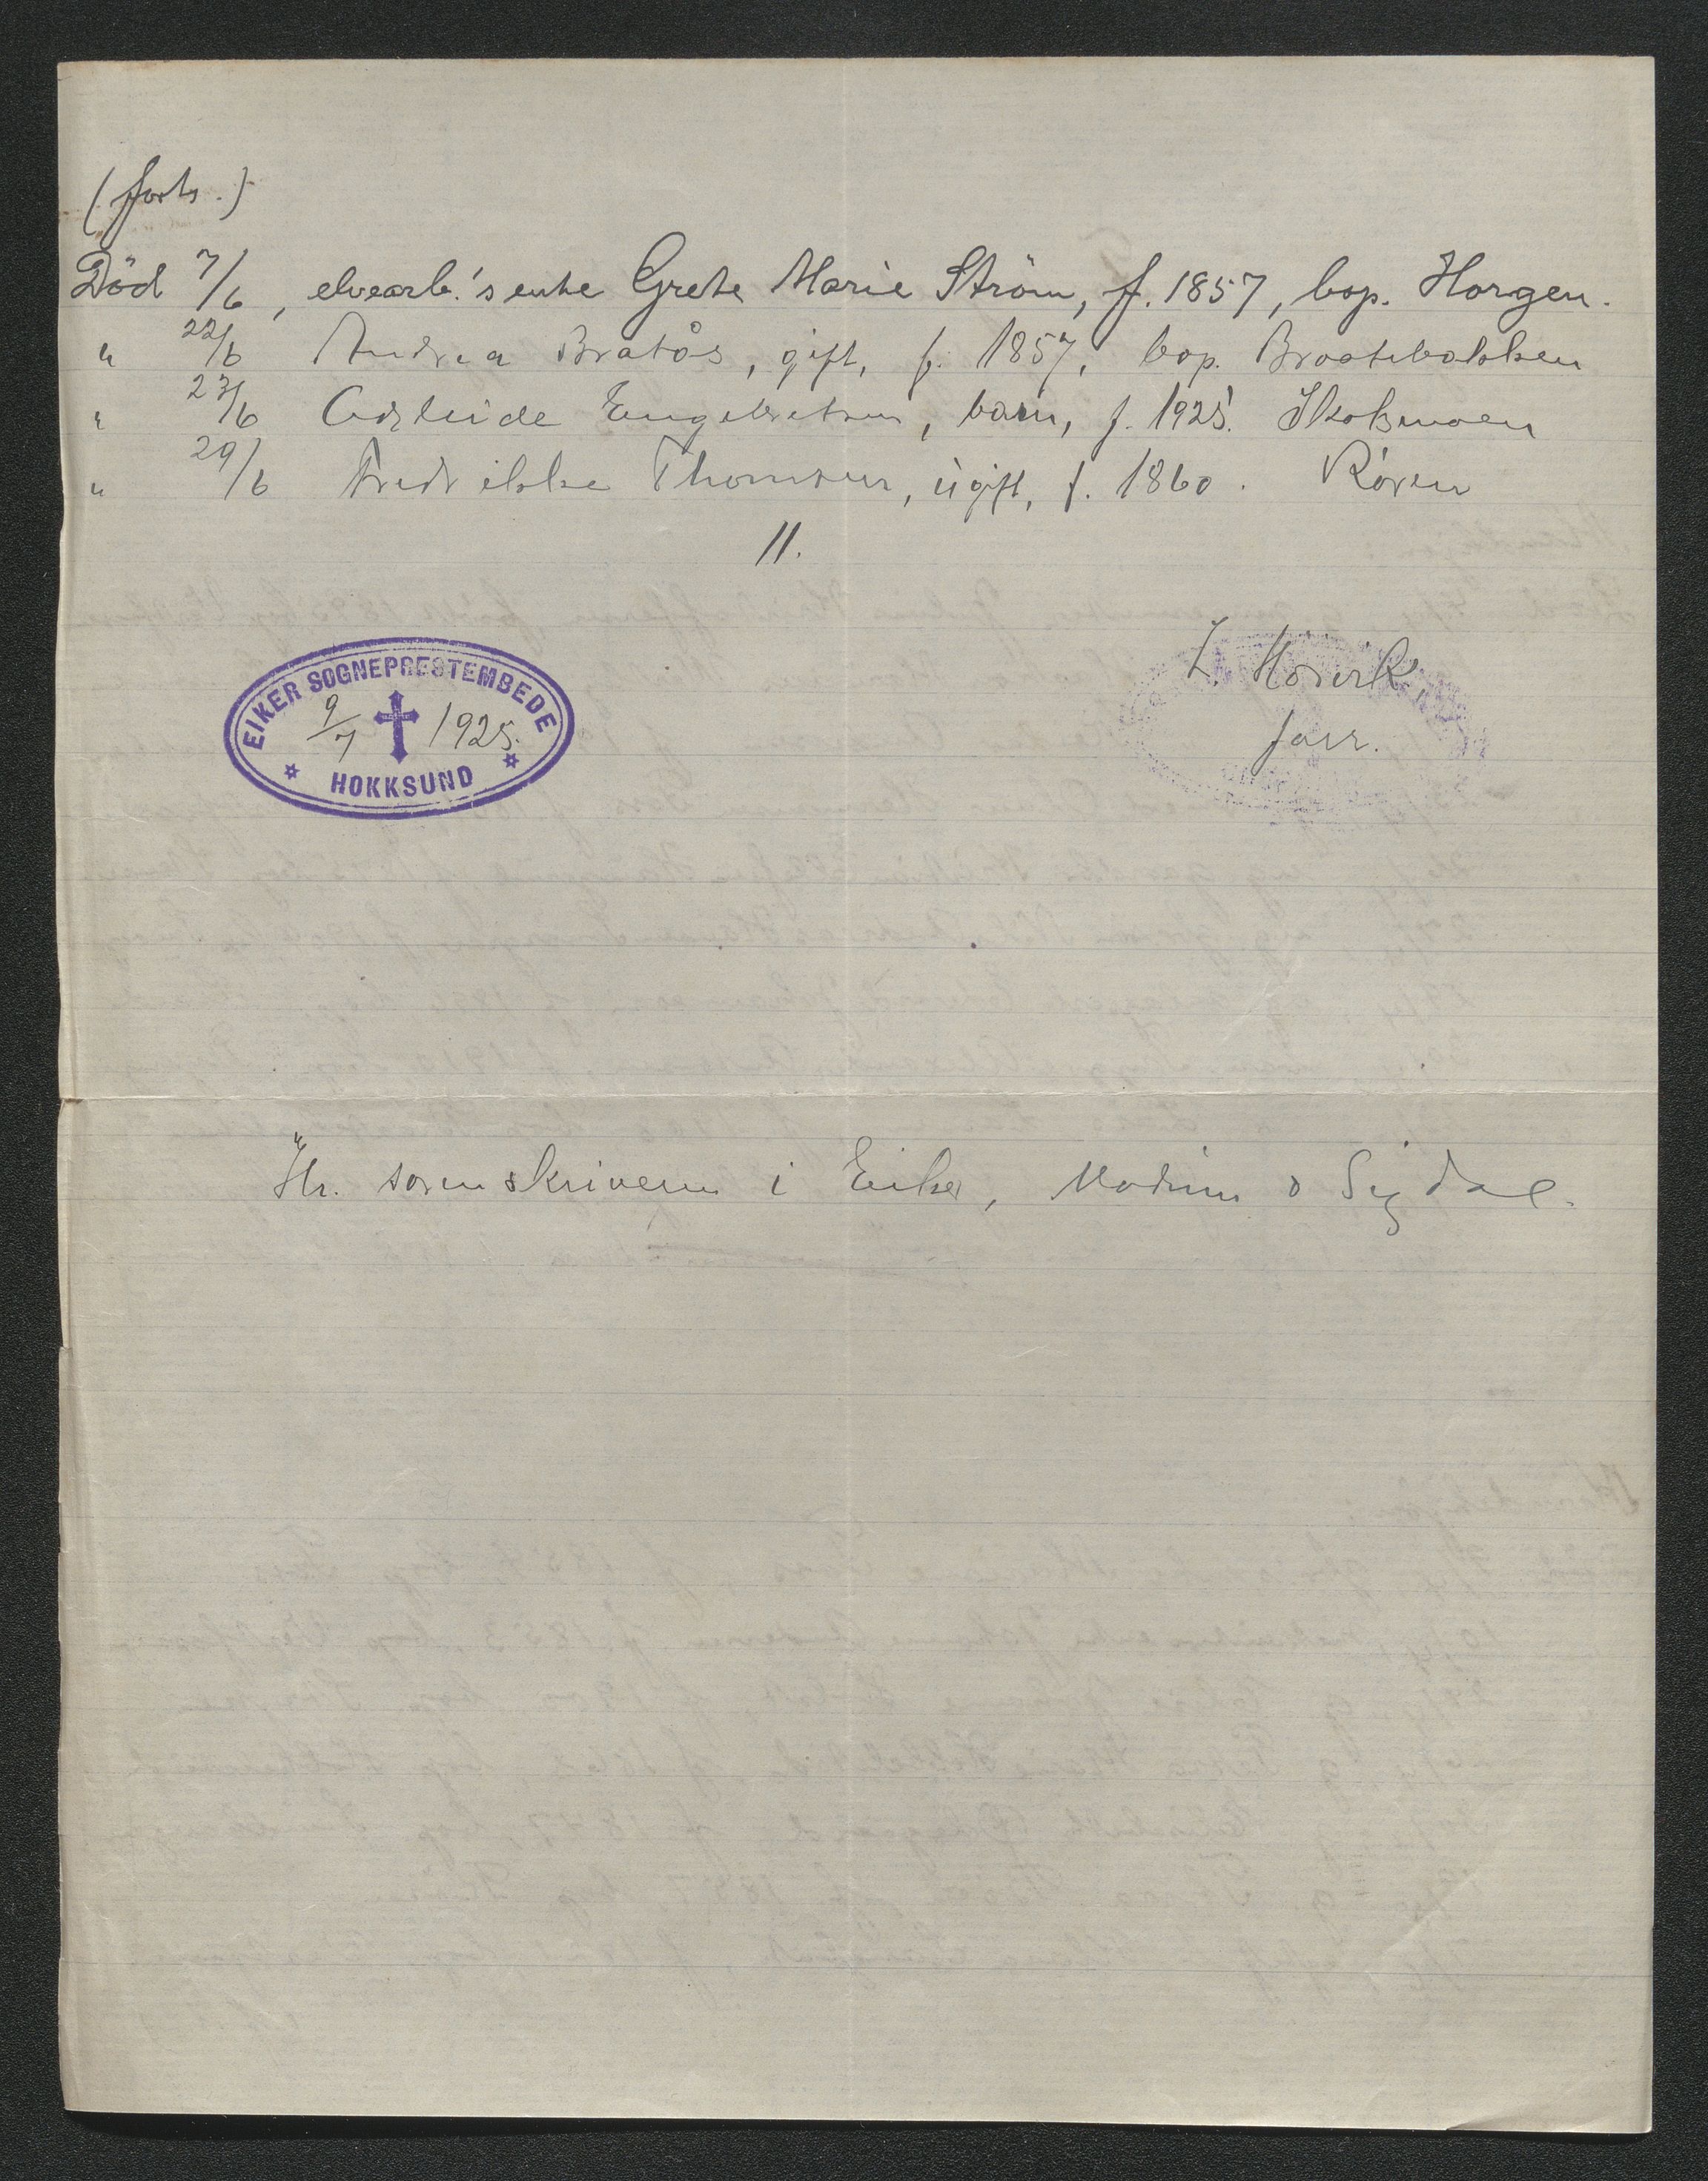 (forts.)
Död 7/6, elvearb.'s enke Grete Marie Ström, f. 1857, bop. Horgen.
" 22/6 Andrea Bråtås, gift, f. 1857, bop. Braatebakken
" 23/6 Adeleide Engebretsen, barn, f. 1925. Skotsmoen
" 29/6 Fredrikke Thomsen, ugift, f. 1860. Røren
11.
EIKER SOGNEPRESTEMBEDE
9/7 1925.
HOKKSUND
L. Hövik
Hr. sorenskriveren i Eiker, Modum o Sigdal.